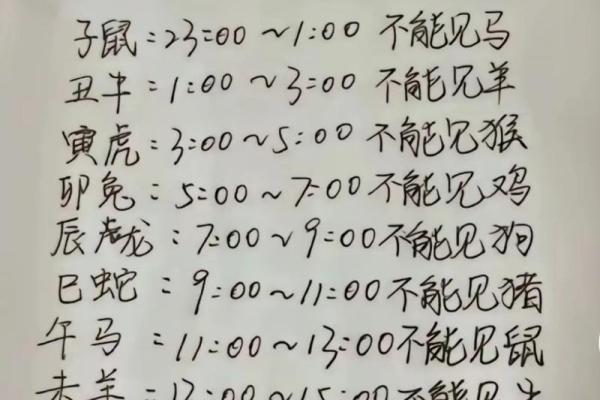 子鼠:23:00~1:00 不能见马
丑牛:1:00~3:00 不能见羊
寅虎:3:00~5:00 不能见猴
卯兔:5:00~7:00 不能见鸡
辰龙:7:00~9:00 不能见狗
巳蛇:9:00~11:00 不能见猪
午马:11:00~13:00 不能见鼠
未羊:13:00~15:00 不能见牛